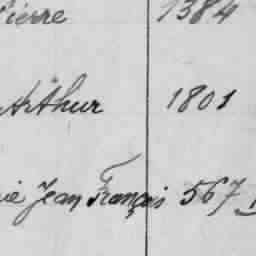 Pierre 1384
Arthur 1801
Jean François 567